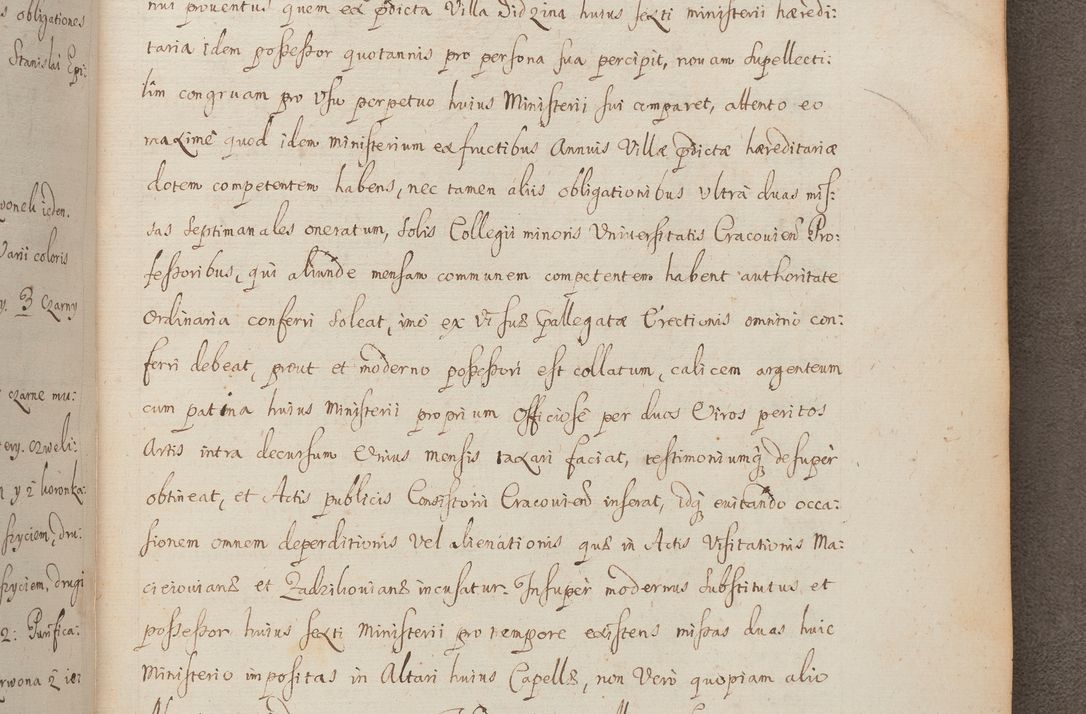 s obligationes
Stanislai Epi:
woneli ieden.
Varii coloris
y. 3 czarny
czarne mu:
tery. czweli:
y z koronka:
szyciem, dru:
szyciem, drugi
2: Purifica:
rwona z ie:
nui proventus quem ex pdicta Villa Didzina huius sexti ministerii hæredi:
taria idem poßeßor quotannis pro persona sua percipit, novam supellecti:
lim congruam pro usu perpetuo huius Ministerii sui comparet, attento eo
maxime quod idem ministerium ex fructibus Annuis Villæ pdictæ hæreditariæ
dotem competentem habens, nec tamen aliis obligationibus Ultra duas mis:
sas septimanales oneratum, solis Collegii minoris Universitatis Cracovien Pro:
feßoribus, qui aliunde mensam communem competentem habent authoritate
Ordinaria conferri soleat, imo ex vi suæ pallegatæ Erectionis omnino con:
ferri debeat, prout et moderno poßeßori est collatum, calicem argenteum
cum patina huius Ministerii proprium Officiose per duos Viros peritos
Artis intra decursum Unius mensis taxari faciat, testimoniumq desuper
obtineat, et Actis publicis Consistorii Cracovien inserat, idq evitando occa:
sionem omnem deperditionis Vel alienationis quæ in Actis Visitationis Ma:
cieiovianæ et Zadzikovianæ incusatur. Insuper modernus substitutus et
poßeßor huius sexti Ministerii pro tempore existens missas duas huic
Ministerio impositas in Altari huius Capellæ, non Vero quopiam alio